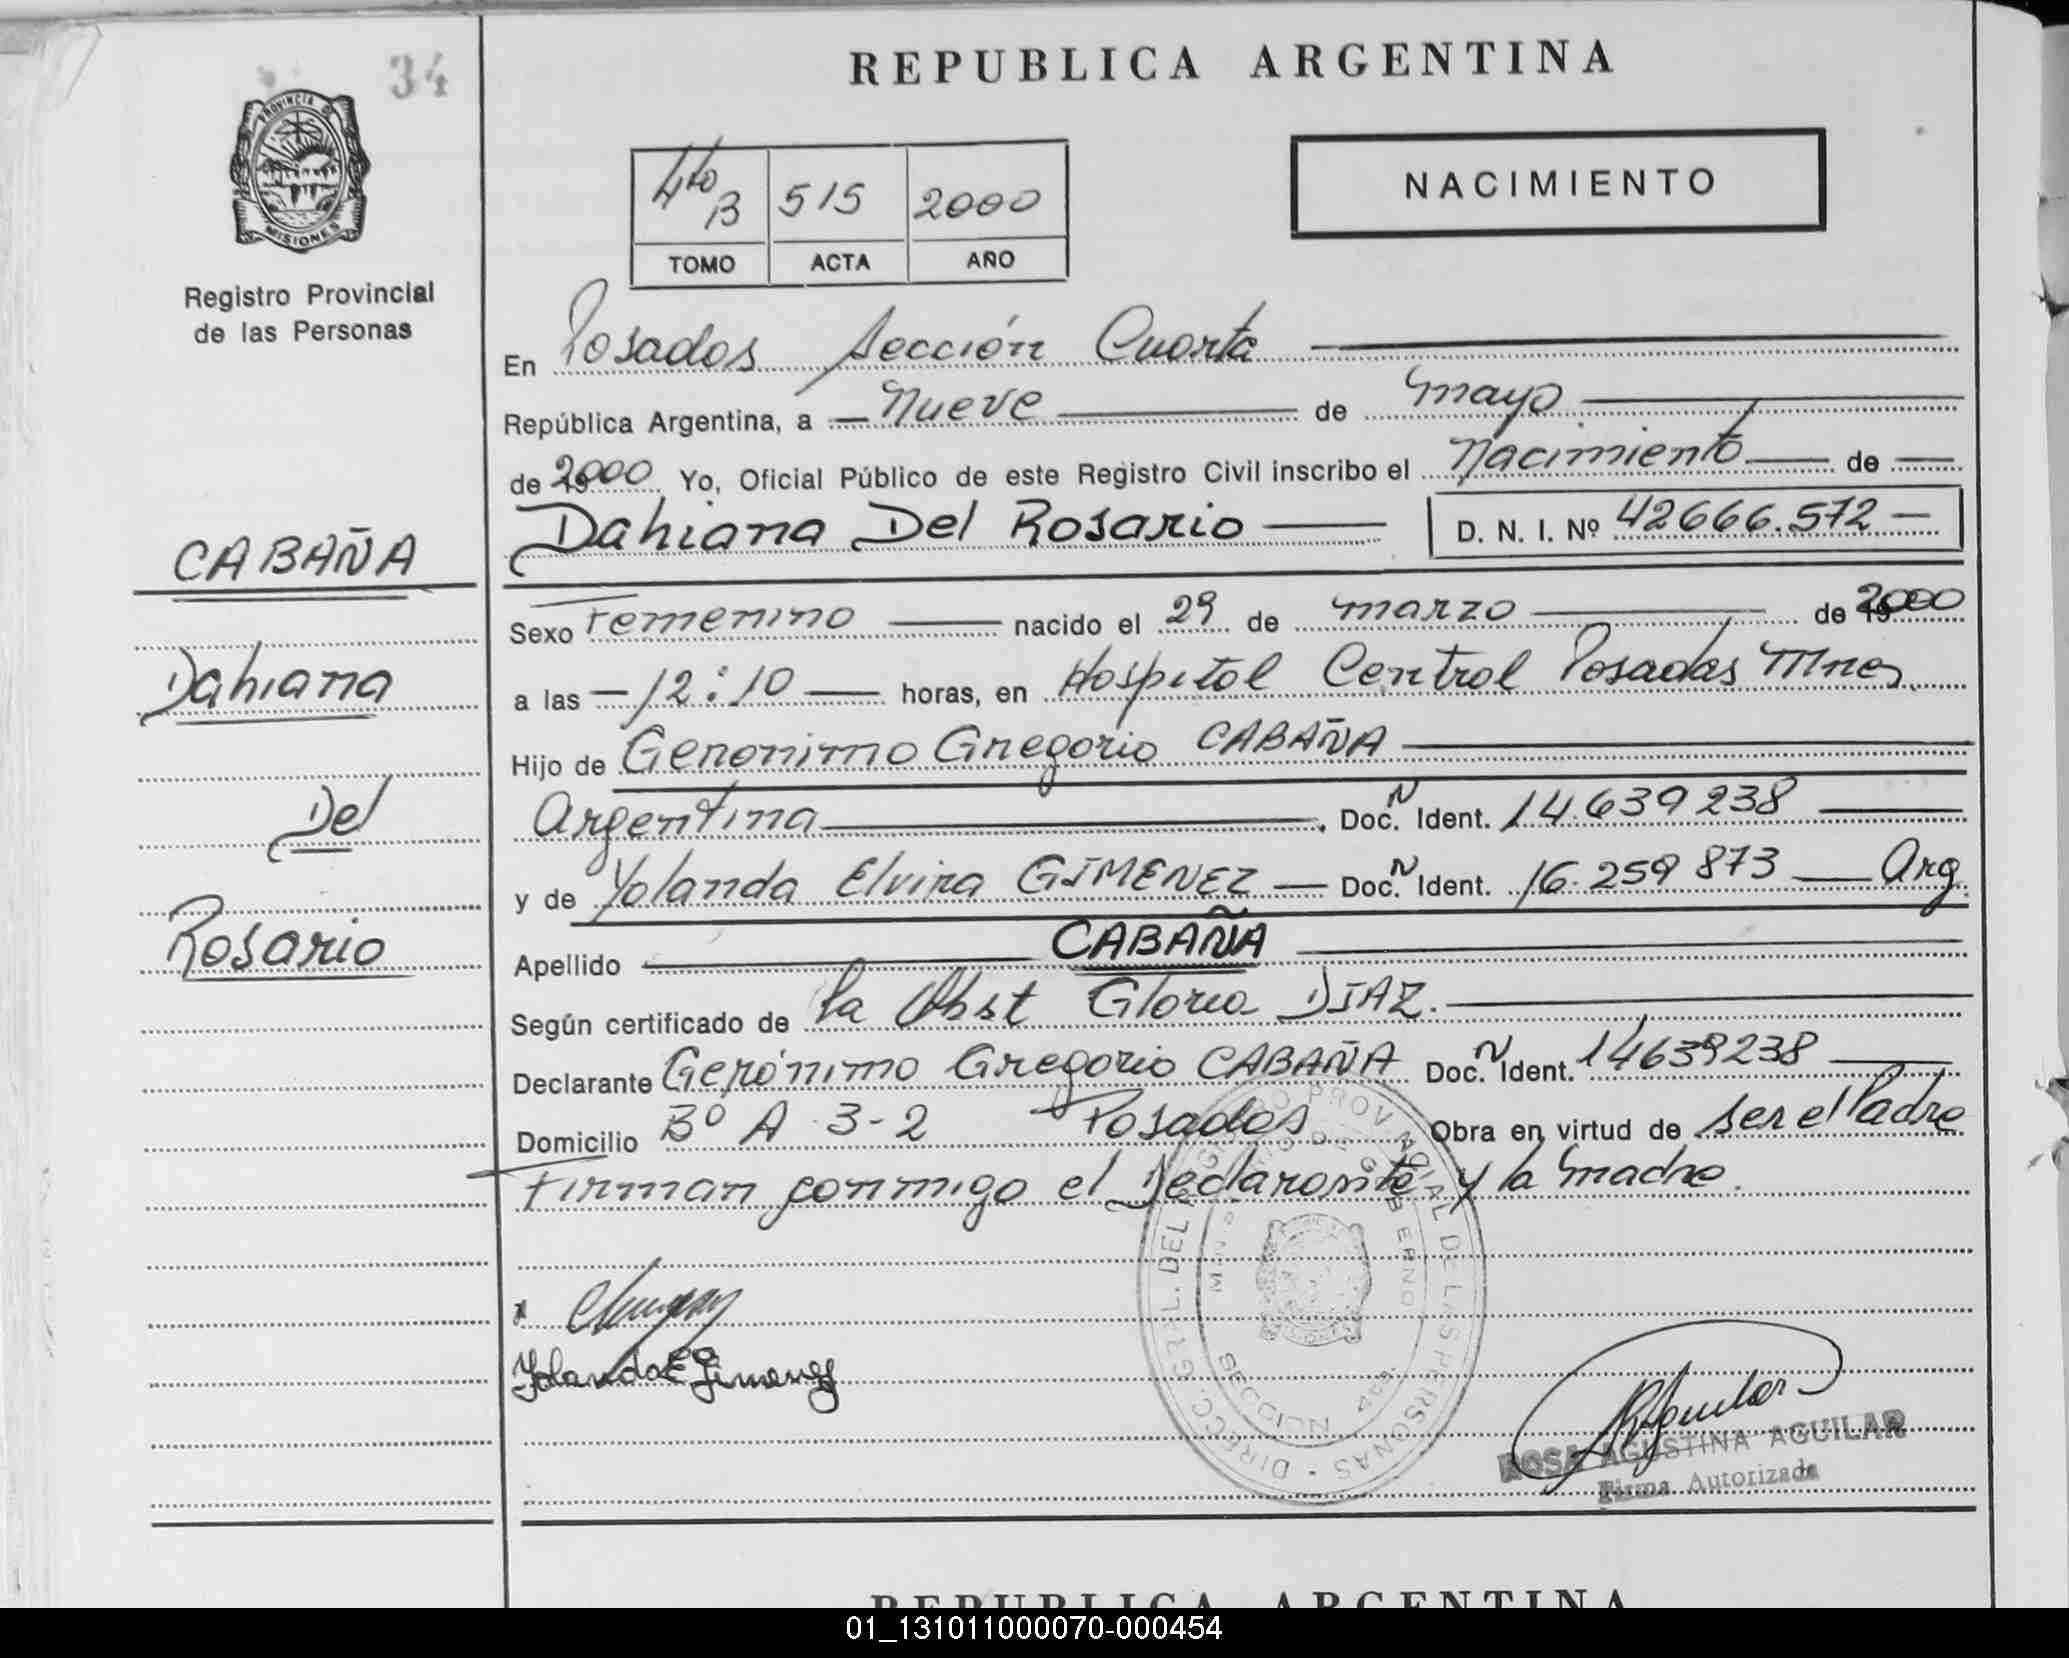 34
REPUBLICA ARGENTINA
PROVINCIA DE
MISIONES
Registro Provincial
de las Personas
4to B 515 2000
TOMO ACTA AÑO
NACIMIENTO
En Posadas Sección Cuarta
República Argentina, a — Nueve — de mayo
de 2000 Yo, Oficial Público de este Registro Civil inscribo el Nacimiento — de —
Dahiana Del Rosario — D. N. I. Nº 42666.572 —
CABAÑA
Dahiana
Del
Rosario
Sexo Femenino — nacido el 29 de marzo — de 2000
a las — 12:10 — horas, en Hospital Central Posadas Mnes.
Hijo de Geronimo Gregorio CABAÑA —
Argentina —. Doc. N Ident. 14.639 238 —
y de Yolanda Elvira GIMENEZ — Doc. N Ident. 16.259 873 — Arg.
Apellido — CABAÑA —
Según certificado de la Obst Gloria DIAZ. —
Declarante Gerónimo Gregorio CABAÑA Doc. N Ident. 14639238 —
Domicilio Bº A 3-2 Posadas Obra en virtud de ser el Padre
Firman conmigo el Declarante y la madre.
Yolanda E Gimenez
DIRECC. GRAL. DEL REGISTRO PROVINCIAL DE LAS PERSONAS
SECCION 4ta.
RAguilar
ROSA AGUSTINA AGUILAR
Firma Autorizada
REPUBLICA ARGENTINA
01_131011000070-000454